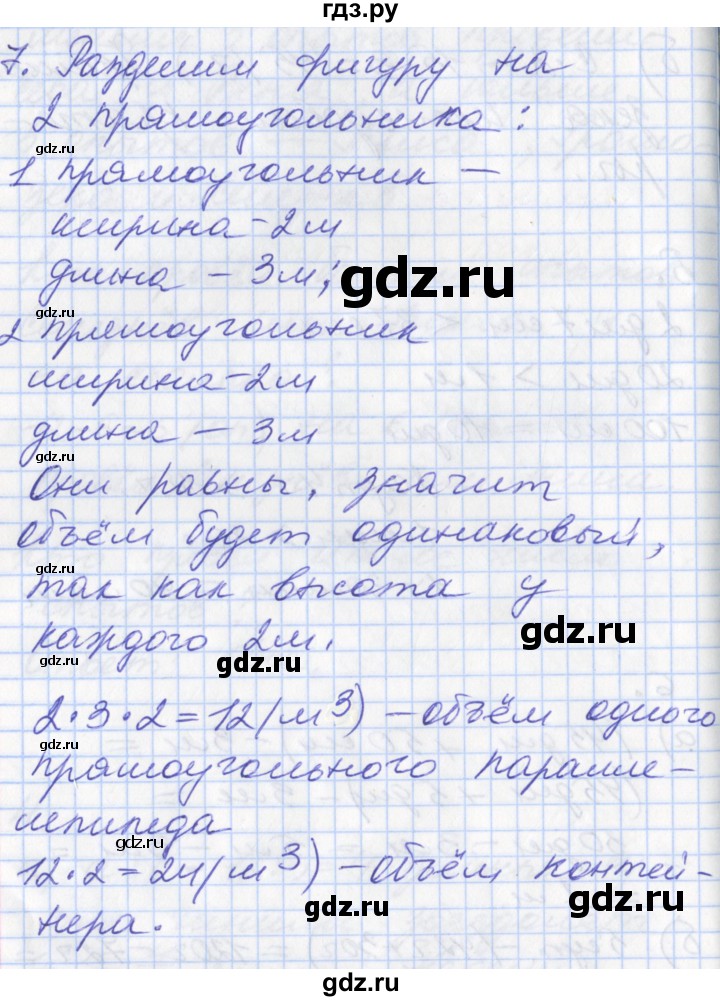 гдз.ру
7. Разделим фигуру на
2 прямоугольника:
1 прямоугольник —
ширина - 2м
gdz.ru
длина - 3м;
gdz.ru
gdz.ru
2 прямоугольник
ширина - 2м
gdz.ru
длина - 3м
gdz.ru
Они равны, значит
объём будет одинаковый,
gdz.ru
так как высота у
gdz.ru
каждого 2м.
gdz.ru
gdz.ru
2·3·2=12(м3) - объём одного
gdz.ru
прямоугольного паралле-
лепипеда
gdz.ru
12·2=24(м3) - объём контей-
gdz.ru
нера.
gdz.ru
gdz.ru